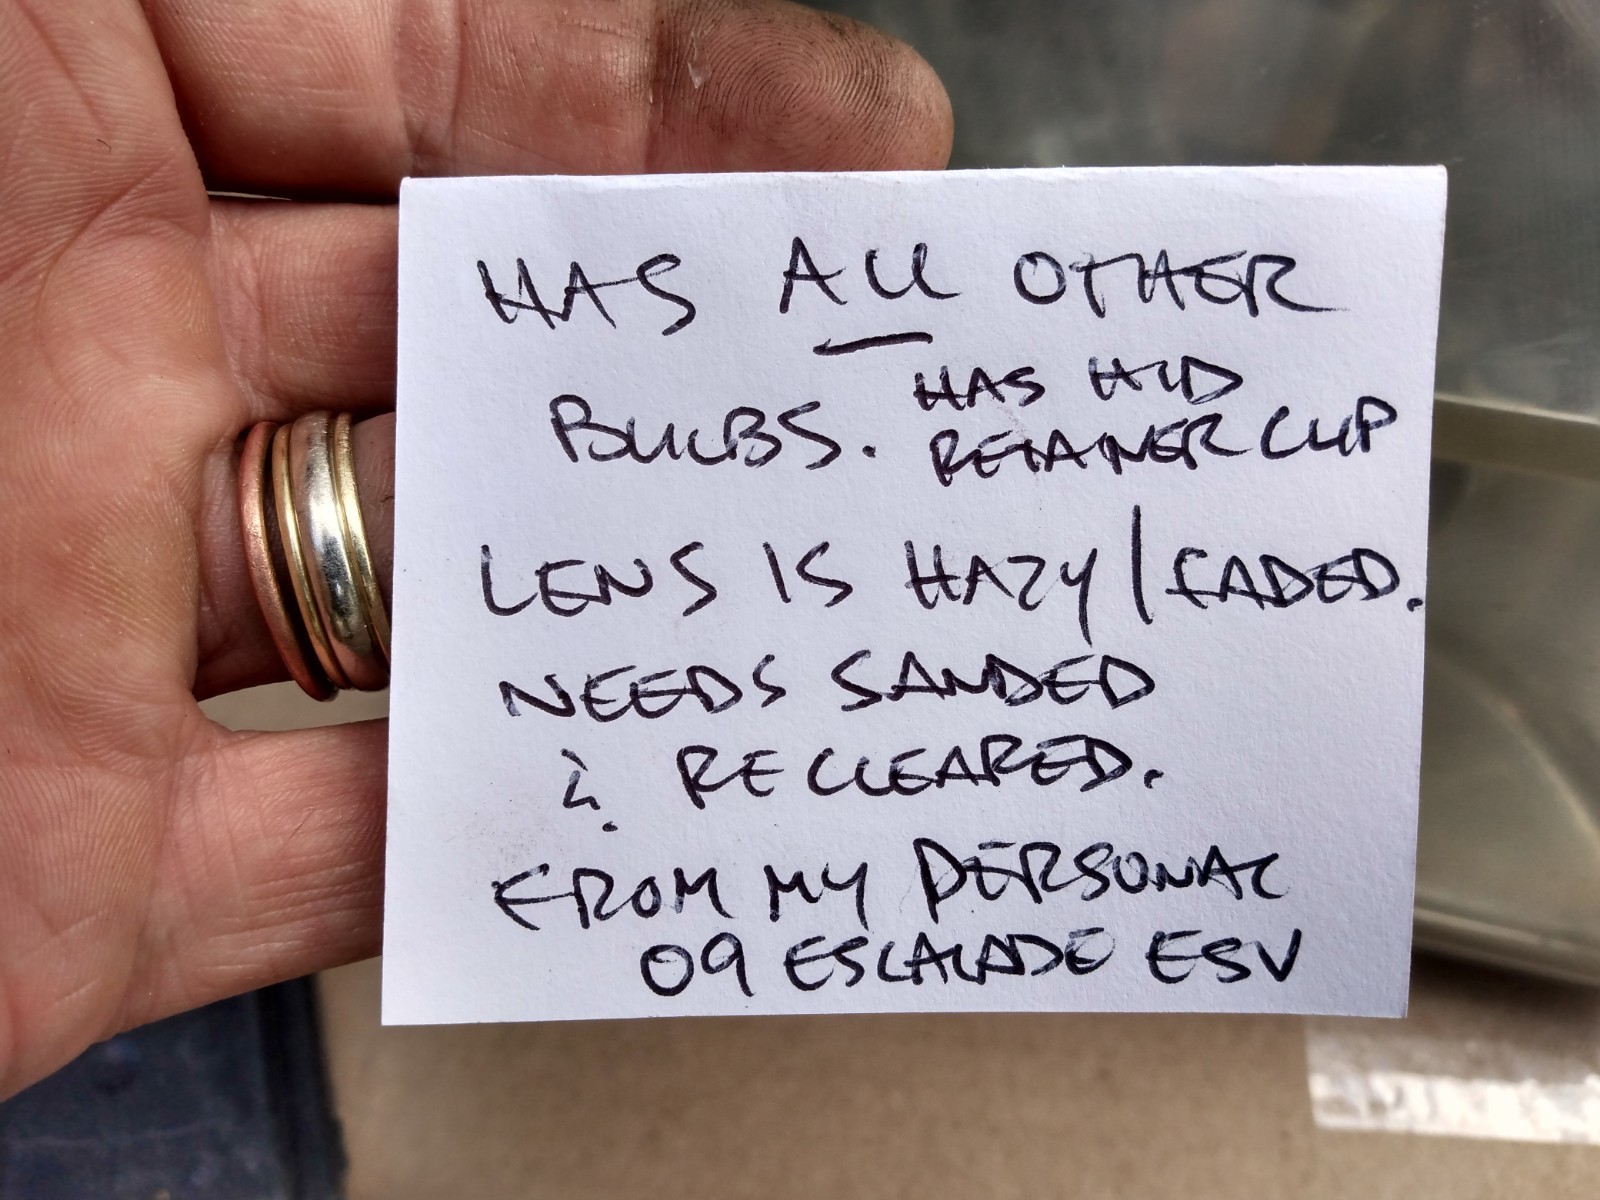 HAS ALL OTHER
BULBS. HAS HID
RETAINER CLIP
LENS IS HAZY/FADED.
NEEDS SANDED
& RECLEARED.
FROM MY PERSONAL
09 ESCALADE ESV